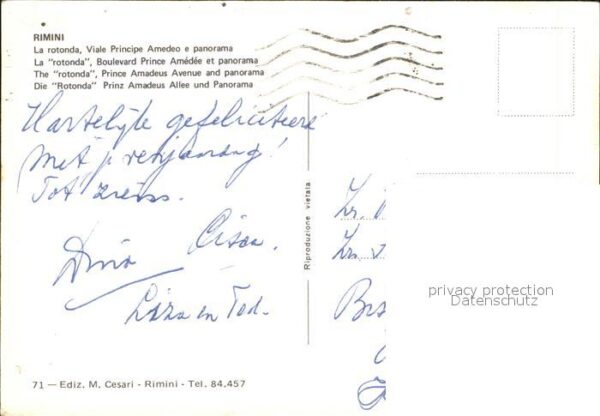 RIMINI
La rotonda, Viale Principe Amedeo e panorama
La "rotonda", Boulevard Prince Amédée et panorama
The "rotonda", Prince Amadeus Avenue and panorama
Die "Rotonda" Prinz Amadeus Allee und Panorama
Hartelijke gefeliciteerd
met je verjaardag!
Tot ziens.
Dino
Lisa en Ted.
Riproduzione vietata
privacy protection
Datenschutz
71 — Ediz. M. Cesari - Rimini - Tel. 84.457